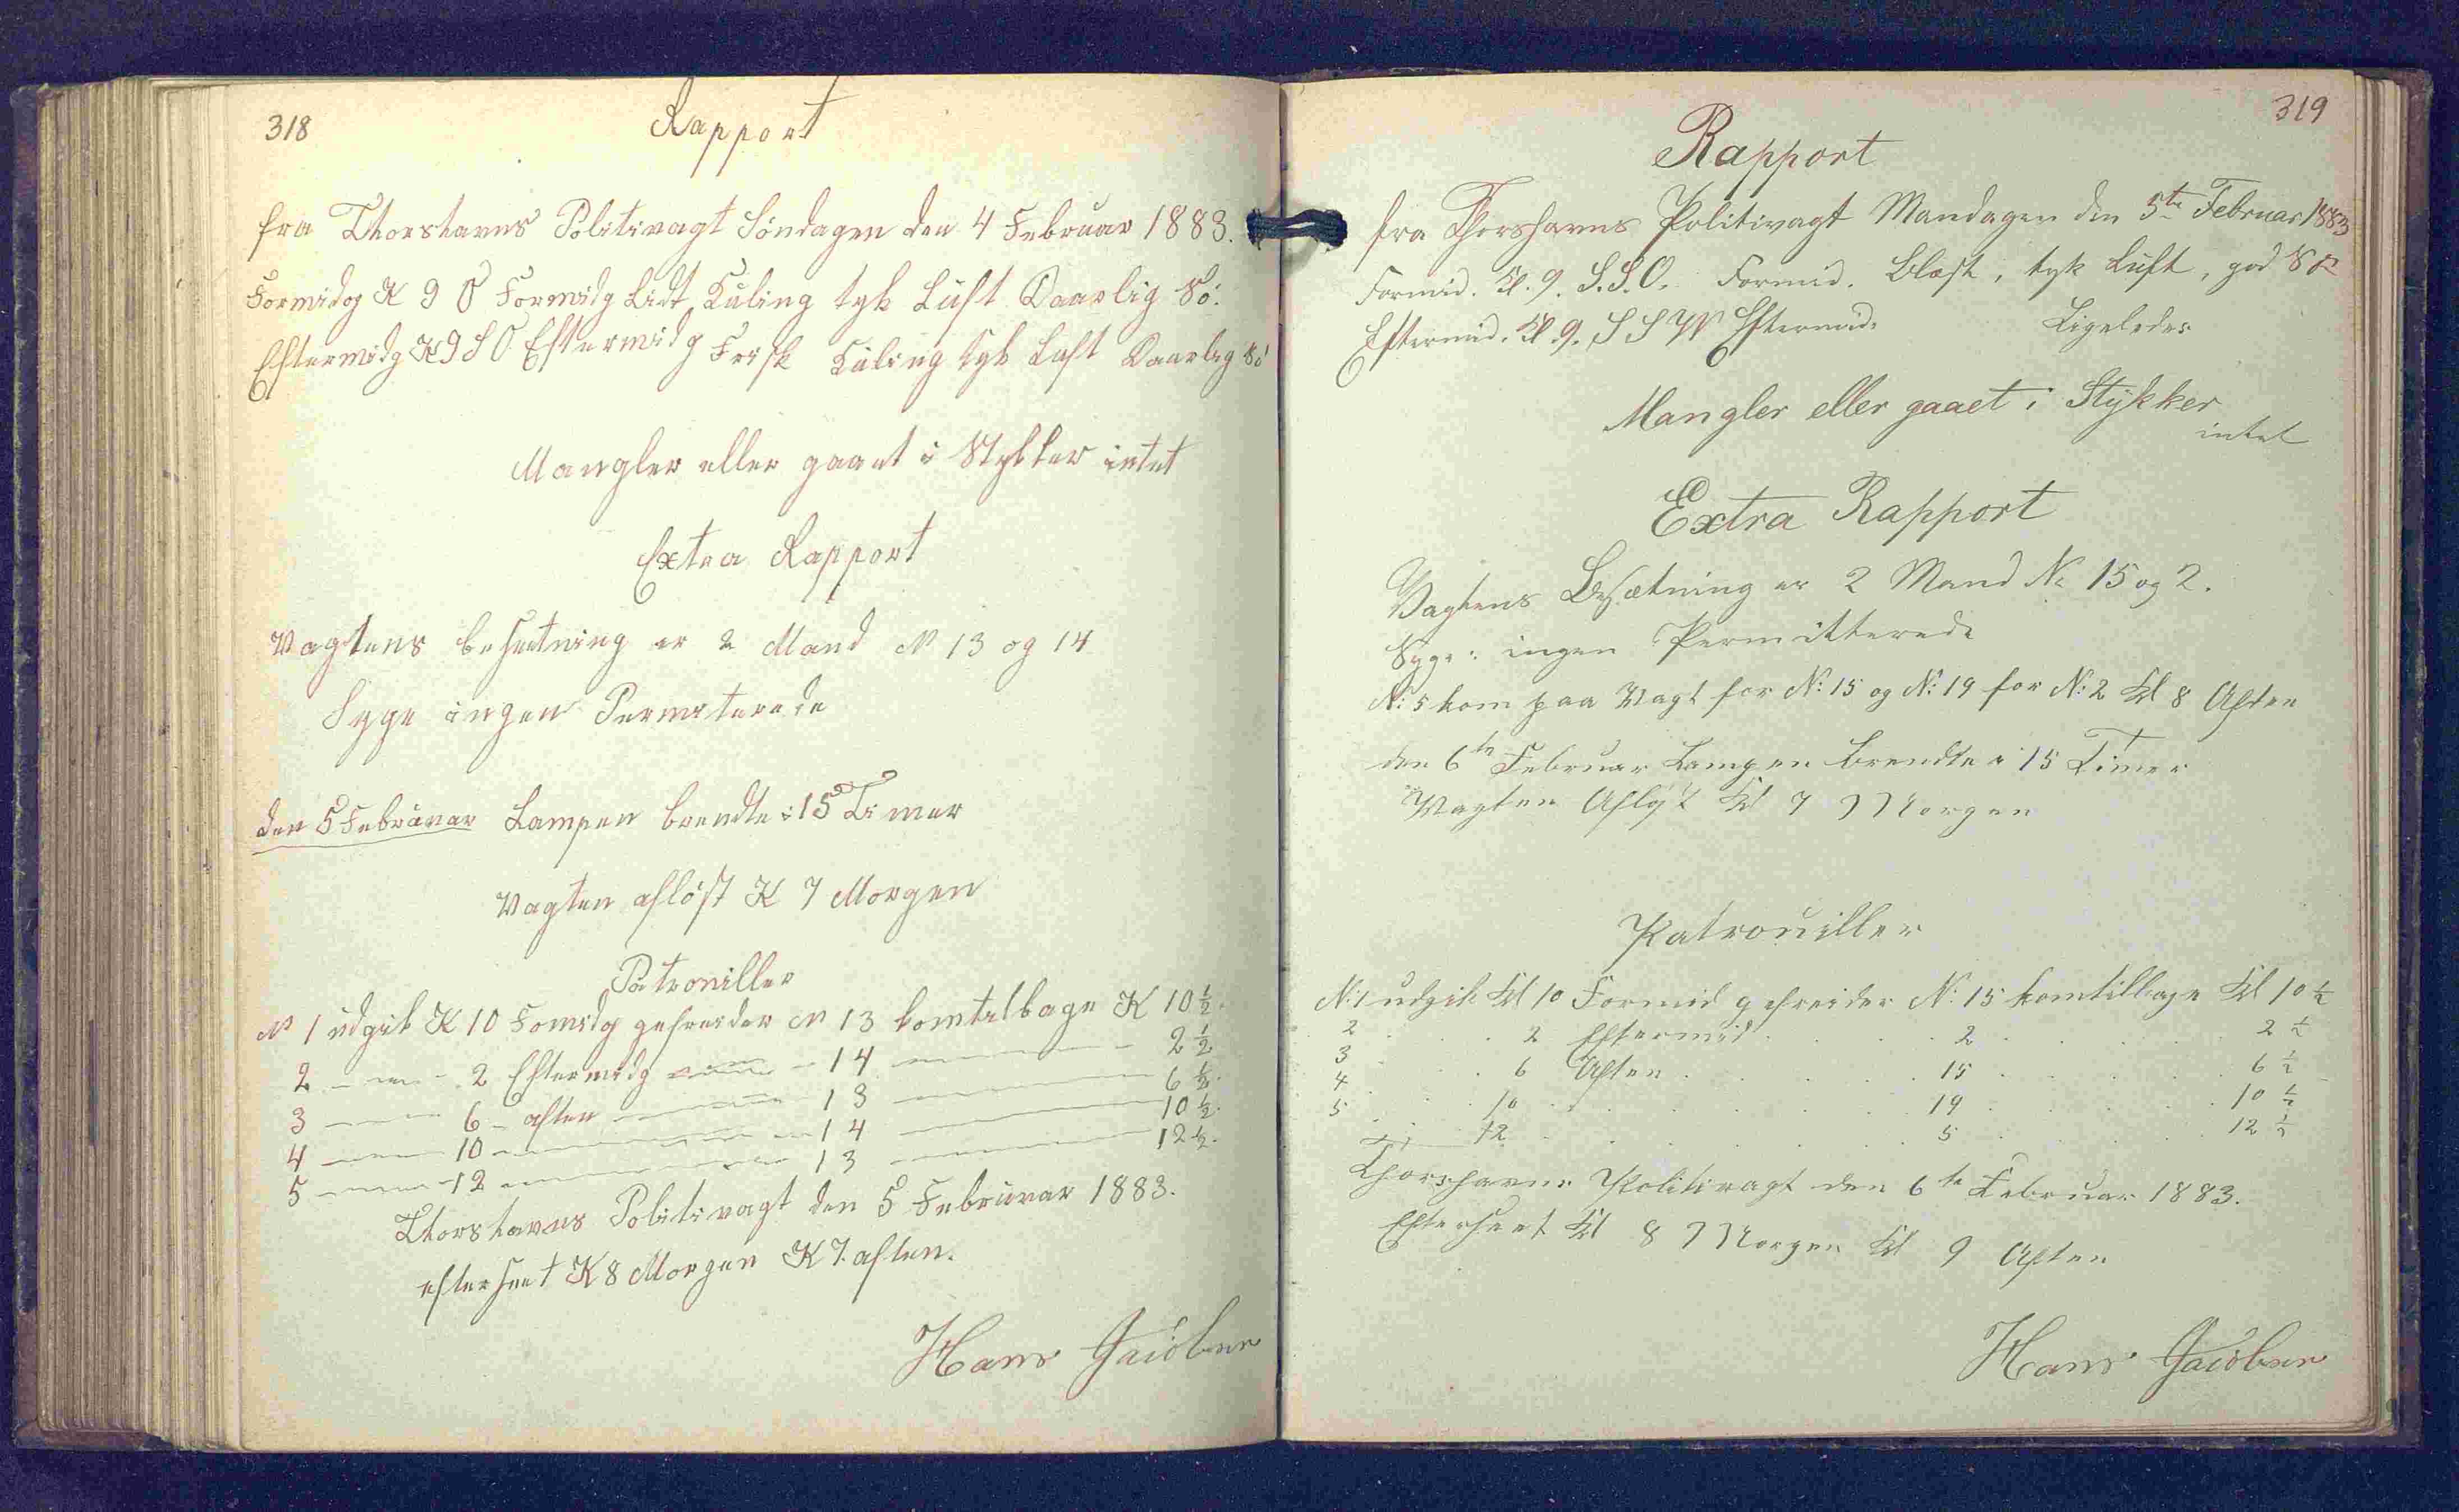 318
Rapport
fra Thorshavns Politivagt Søndagen den 4 Februar 1883.
Formidg K 9 O Formidg Lidt Kuling tyk Luft Daarlig Sö.
Eftermidg K 9 S O Eftermidg Frisk Kuling tyk Luft Daarlig Sö
Mangler eller gaaet i Stykker intet
Extra Rapport
Vagtens besætning er 2 Mand N 13 og 14
Syge ingen Permiterede
den 5 Februar Lampen brendte i 15 Timer
Vagten afløst K 7 Morgen
Patrouiller
N 1 udgik K 10 Fomidg gefreider N 13 komtilbage K 10 ½.
2 2 Eftermidg 14 2 ½
3 6 aften 13 6 ½.
4 10 14 10 ½.
5 12 13 12 ½.
Thorshavns Politivagt den 5 Februar 1883.
efterseet K 8 Morgen K 7 aften.
Hans Jacobsen
319
Rapport
fra Thorshavns Politivagt Mandagen den 5te Februar 1883
Formid. Kl. 9. S.S.O. Formid. Blæst, tyk Luft, god Sö
Eftermid. Kl 9. S S W Eftermid. Ligeledes
Mangler eller gaaet i Stykker
intet
Extra Rapport
Vagtens Besætning er 2 Mand No 15 og 2.
Syge: ingen Permitterede
N: 5 kom paa Vagt for N: 15 og N: 19 for N: 2 Kl 8 Aften
den 6te Februar Lampen brendte i 15 Timer
Vagten Afløst Kl 7 Morgen
Patrouiller
N: 1 udgik Kl 10 Formid gefreider N: 15 komtilbage Kl 10 ½
2 2 Eftermid 2 2 ½
3 6 Aften 15 6 ½
4 10 19 10 ½
5 12 5 12 ½
Thorshavns Politivagt den 6te Februar 1883.
Efterseet Kl 8 Morgen Kl 9 Aften
Hans Jacobsen